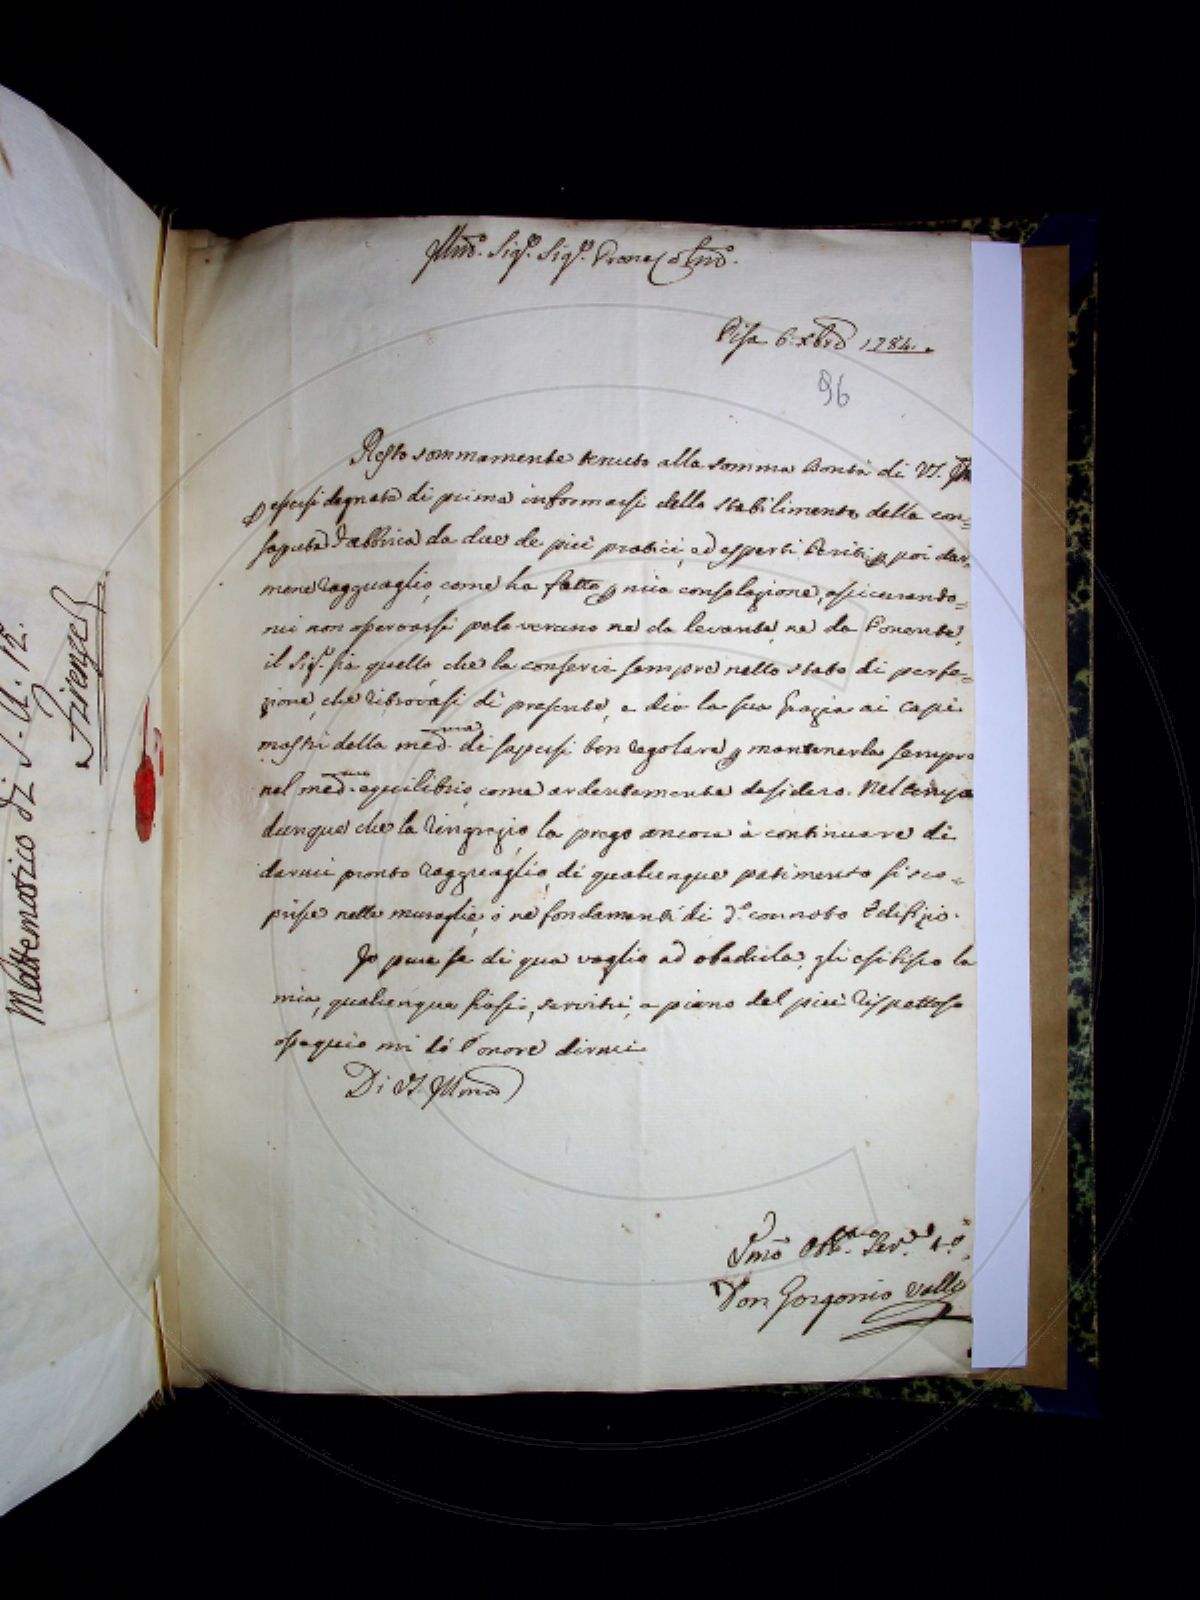 Illmo. Sigr. Sigr. Prone Colmo.
Pisa 6. Xbre 1784.
96
Resto sommamente tenuto alla somma bontà di VS. Illma
p essersi degnata di prima informarsi dello stabilimento della con=
saputa Fabbrica da due de più pratici, ed esperti Periti, p poi dar-
mene ragguaglio, come ha fatto p mia consolazione, assicurando=
mi non osservarsi pelo veruno ne da levante, ne da Ponente,
il Sigr. sia quello, che la conservi sempre nello stato di perfe=
zione, che ritrovasi di presente, e dia la sua Grazia ai capi
mastri della medma. di sapersi ben regolare p mantenerla sempre
nel medmo. equilibrio, come ardentemente desidero. Nel tempo
dunque che la ringrazio, la prego ancora à continuare di
darmi pronto ragguaglio, di qualunque patimento si sco=
prisse nelle muraglie, ò ne fondamenti di do. connoto Edifizio.
Io pure se di qua vaglio ad obedirla, gli esibisco la
mia, qualunque siasi, servitù, e pieno del più rispettoso
ossequio mi dò l'onore dirmi
Di VS. Illma
Dmo Obbmo. Servre. Vo.
Don Gorgonio Valli
Mattematico di S. A. R.
Firenze